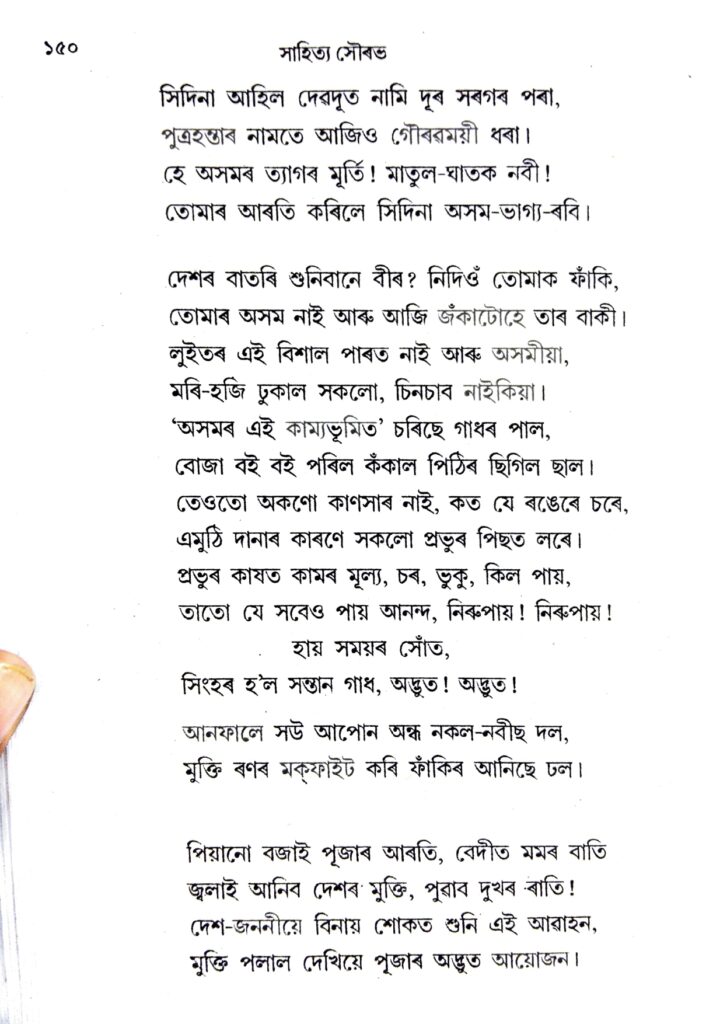 ১৫০
সাহিত্য সৌৰভ
সিদিনা আহিল দেৱদূত নামি দূৰ সৰগৰ পৰা,
পুত্ৰহন্তাৰ নামতে আজিও গৌৰৱময়ী ধৰা।
হে অসমৰ ত্যাগৰ মূৰ্তি! মাতুল-ঘাতক নবী!
তোমাৰ আৰতি কৰিলে সিদিনা অসম-ভাগ্য-ৰবি।
দেশৰ বাতৰি শুনিবানে বীৰ? নিদিওঁ তোমাক ফাঁকি,
তোমাৰ অসম নাই আৰু আজি জঁকাটোহে তাৰ বাকী।
লুইতৰ এই বিশাল পাৰত নাই আৰু অসমীয়া,
মৰি-হজি ঢুকাল সকলো, চিনচাব নাইকিয়া।
‘অসমৰ এই কাম্যভূমিত’ চৰিছে গাধৰ পাল,
বোজা বই বই পৰিল কঁকাল পিঠিৰ ছিগিল ছাল।
তেওতো অকণো কাণসাৰ নাই, কত যে ৰঙেৰে চৰে,
এমুঠি দানাৰ কাৰণে সকলো প্ৰভুৰ পিছত লৰে।
প্ৰভুৰ কাষত কামৰ মূল্য, চৰ, ভুকু, কিল পায়,
তাতো যে সবেও পায় আনন্দ, নিৰুপায়! নিৰুপায়!
হায় সময়ৰ সোঁত,
সিংহৰ হ’ল সন্তান গাধ, অদ্ভুত! অদ্ভুত!
আনফালে সউ আপোন অন্ধ নকল-নবীছ দল,
মুক্তি ৰণৰ মক্‌ফাইট কৰি ফাঁকিৰ আনিছে ঢল।
পিয়ানো বজাই পূজাৰ আৰতি, বেদীত মমৰ বাতি
জ্বলাই আনিব দেশৰ মুক্তি, পুৱাব দুখৰ ৰাতি!
দেশ-জননীয়ে বিনায় শোকত শুনি এই আৱাহন,
মুক্তি পলাল দেখিয়ে পূজাৰ অদ্ভুত আয়োজন।